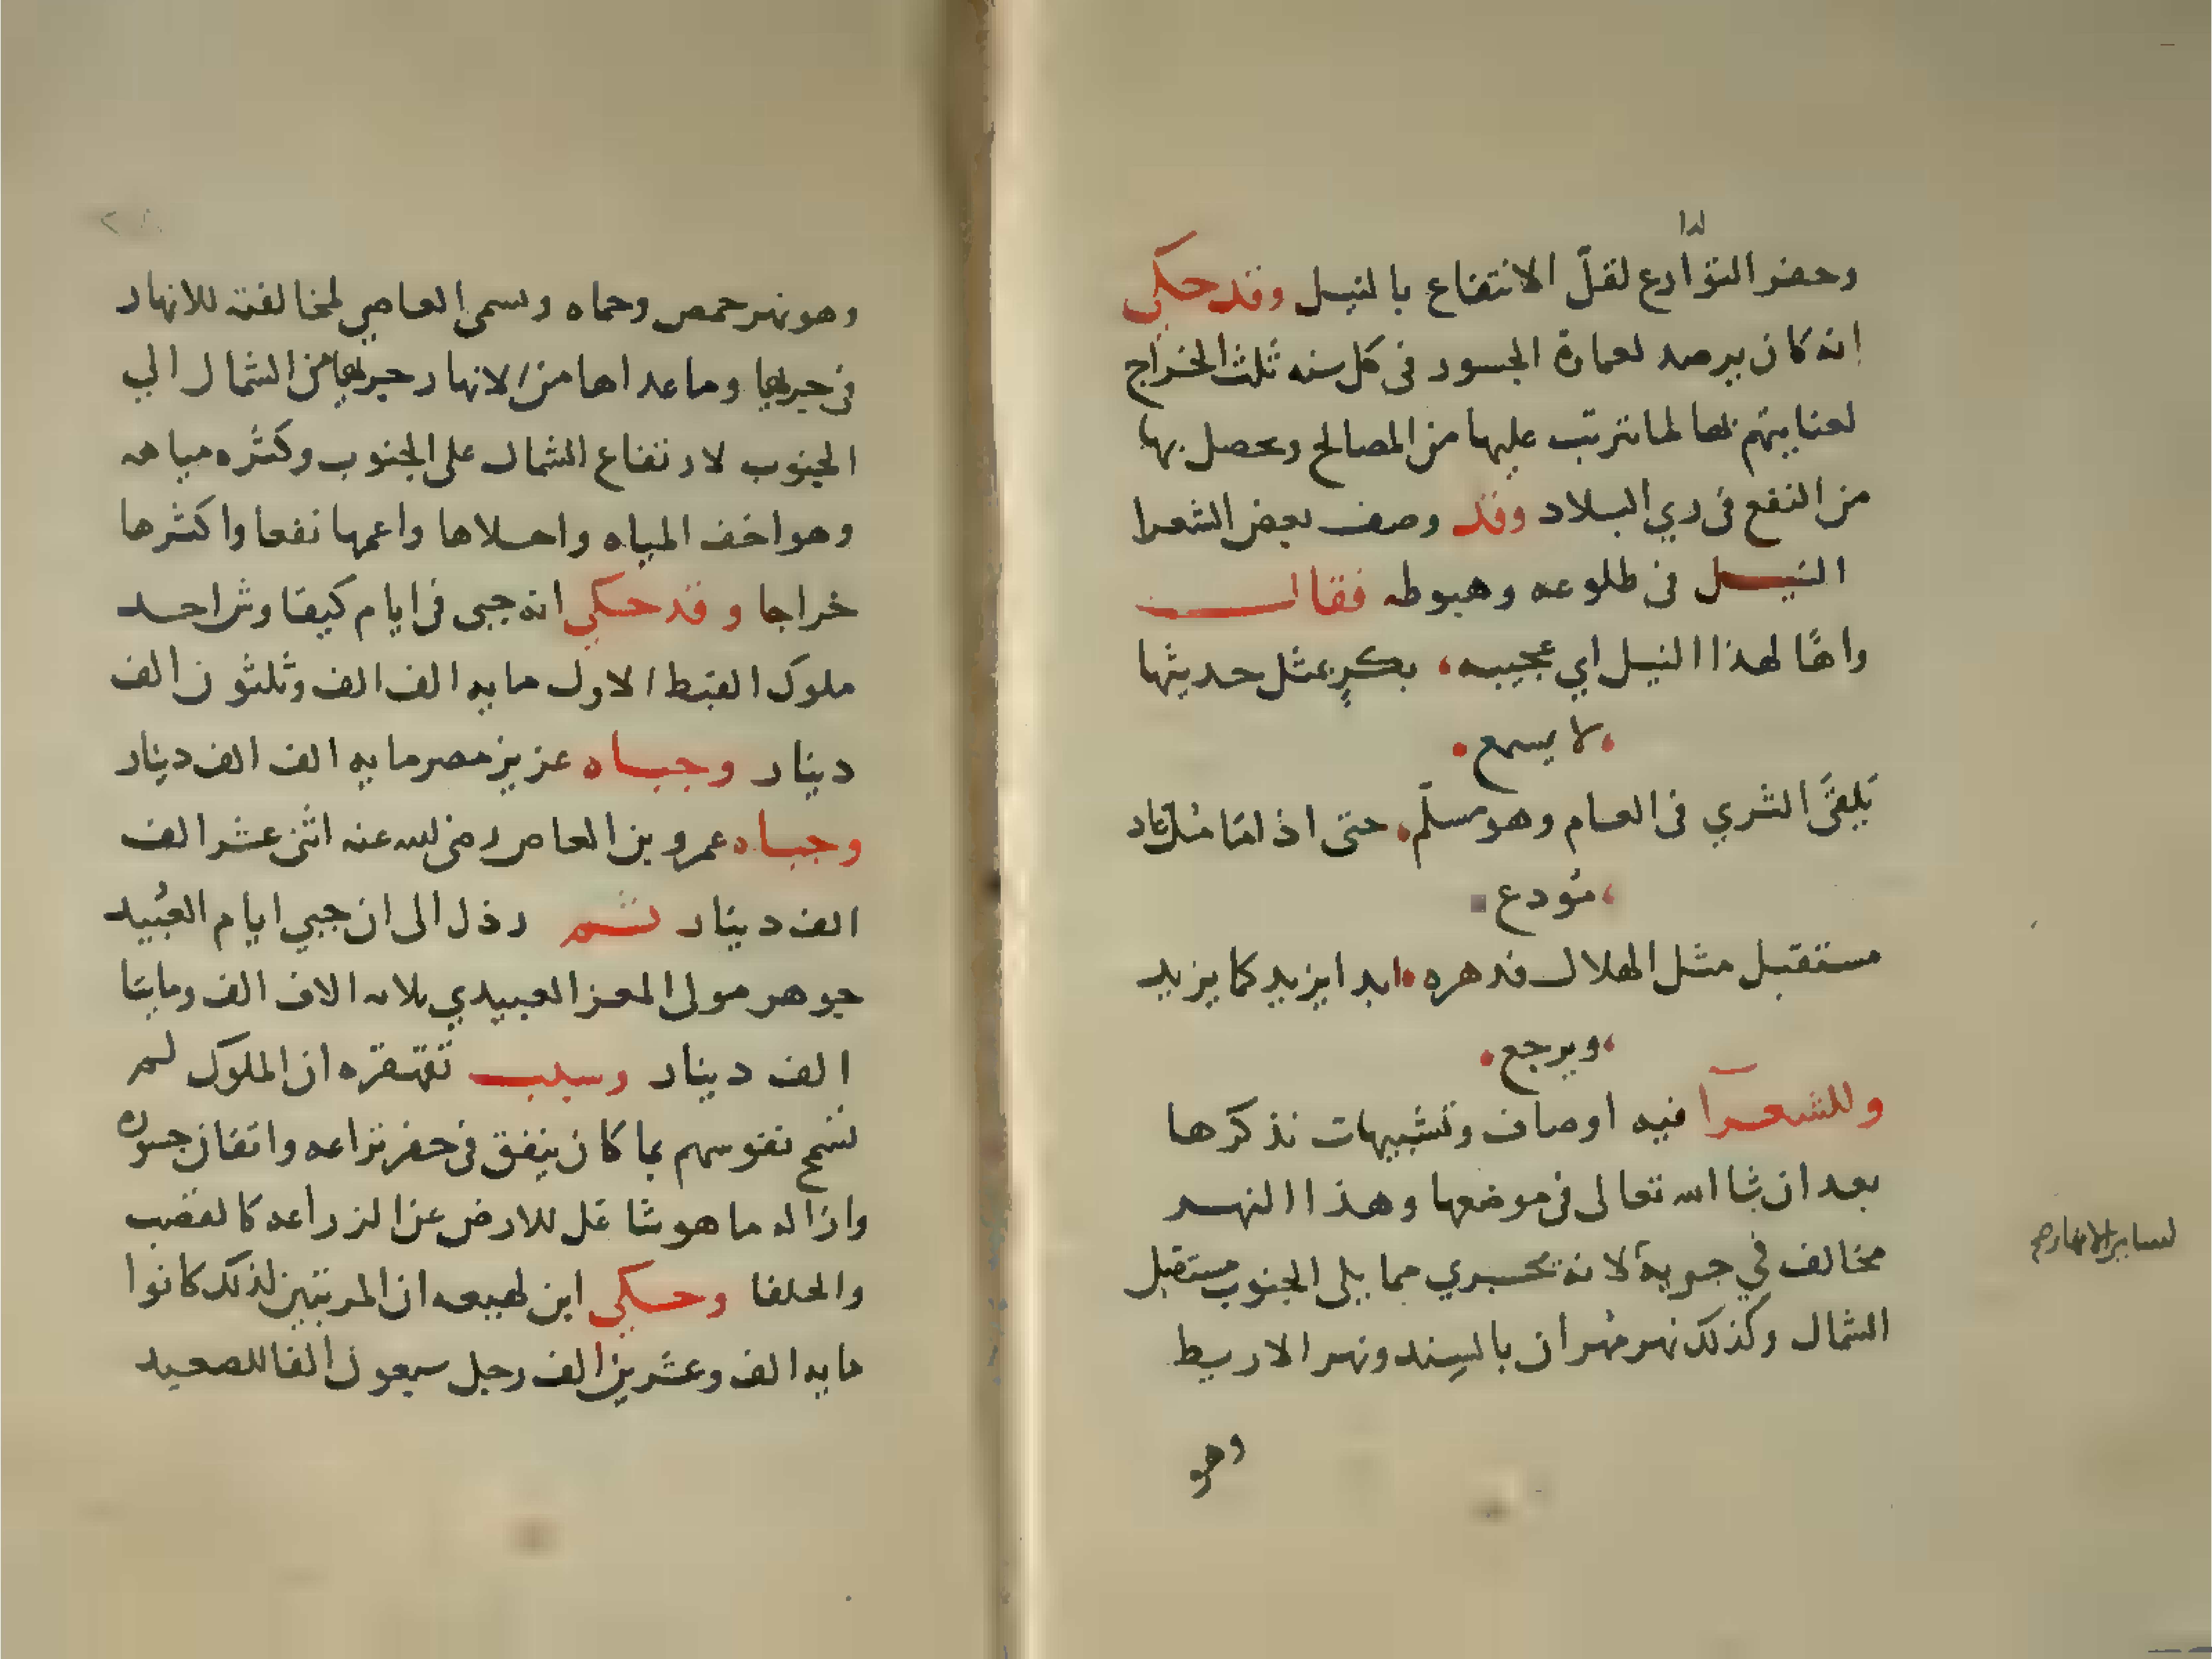 لما
وحفر التوارع لقلّ الانتفاع بالنيل وقد حكي
انه كان يرصد لعمارة الجسور فى كل سنه ثلث الخراج
لعنايتهم بها لما يترتب عليها من المصالح ويحصل بها
من النفع فى ري البلاد وقد وصف بعض الشعرا
النيل فى طلوعه وهبوطه فقال
واهًا لهذا النيل اي عجيبه بكرٍ بمثل حديثها
لا يسمع
يلقى الثري فى العام وهو مسلّم حتى اذا ما مل عاد
مودع
مستقبل مثل الهلال فدهره ابدا يزيد كما يزيد
ويرجع
وللشعرآ فيه اوصاف وتشبيهات نذكرها
بعد ان شا الله تعالى فى موضعها وهذا النهر
مخالف في جريه لانه يجري مما يلى الجنوب مستقبل
لساير الانهار صح
الشمال وكذلك نهر مهران بالسند ونهر الاريط
وهو
وهو نهر حمص وحماه ويسمى العاصي لمخالفته للانهار
فى جريها وما عداها من الانهار جريها من الشمال الي
الجنوب لارتفاع الشمال على الجنوب وكثره مياهه
وهو اخف المياه واحلاها واعمها نفعا واكثرها
خراجا وقد حكي انه جبى فى ايام كيقاوش احد
ملوك القبط الاول مايه الف الف وثلثون الف
دينار وجباه عزيز مصر مايه الف الف دينار
وجباه عمرو بن العاص رضي لله عنه اثنى عشر الف
الف دينار ثم رذل الى ان جبي ايام العبيد
جوهر مولى المعز العبيدي ثلاثه الاف الف ومايتا
الف دينار وسبب تقهقره ان الملوك لم
تسمح نفوسهم بما كان ينفق فى حفر تراعه واتقان جسوره
وازاله ما هو شاغل للارض عن الزراعه كالقضب
والحلفا وحكي ابن لهيعه ان المرتبين لذلك كانوا
مايه الف وعشرين الف رجل سبعون الفا للصعيد